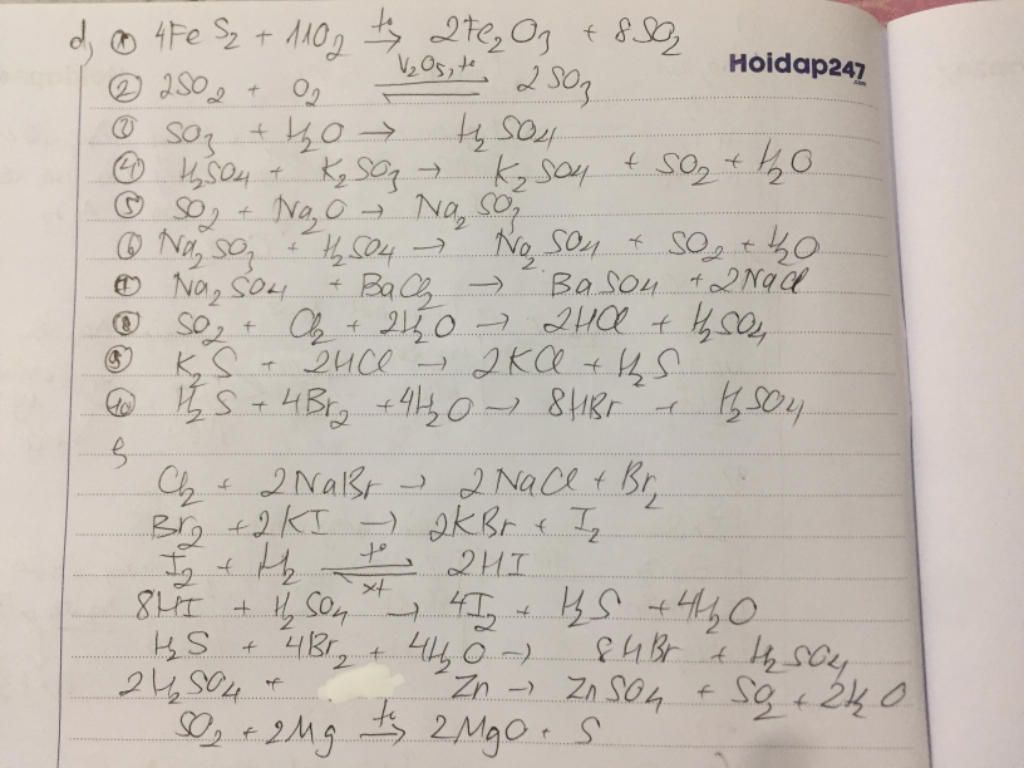 d, ① 4FeS₂ + 11O₂ →(t°) 2Fe₂O₃ + 8SO₂
Hoidap247.com
② 2SO₂ + O₂ ⇌(V₂O₅, t°) 2SO₃
③ SO₃ + H₂O → H₂SO₄
④ H₂SO₄ + K₂SO₃ → K₂SO₄ + SO₂ + H₂O
⑤ SO₂ + Na₂O → Na₂SO₃
⑥ Na₂SO₃ + H₂SO₄ → Na₂SO₄ + SO₂ + H₂O
⑦ Na₂SO₄ + BaCl₂ → BaSO₄ + 2NaCl
⑧ SO₂ + Cl₂ + 2H₂O → 2HCl + H₂SO₄
⑨ K₂S + 2HCl → 2KCl + H₂S
⑩ H₂S + 4Br₂ + 4H₂O → 8HBr + H₂SO₄
Cl₂ + 2NaBr → 2NaCl + Br₂
Br₂ + 2KI → 2KBr + I₂
I₂ + H₂ ⇌(t°, xt) 2HI
8HI + H₂SO₄ → 4I₂ + H₂S + 4H₂O
H₂S + 4Br₂ + 4H₂O → 8HBr + H₂SO₄
2H₂SO₄ + Zn → ZnSO₄ + SO₂ + 2H₂O
SO₂ + 2Mg →(t°) 2MgO + S